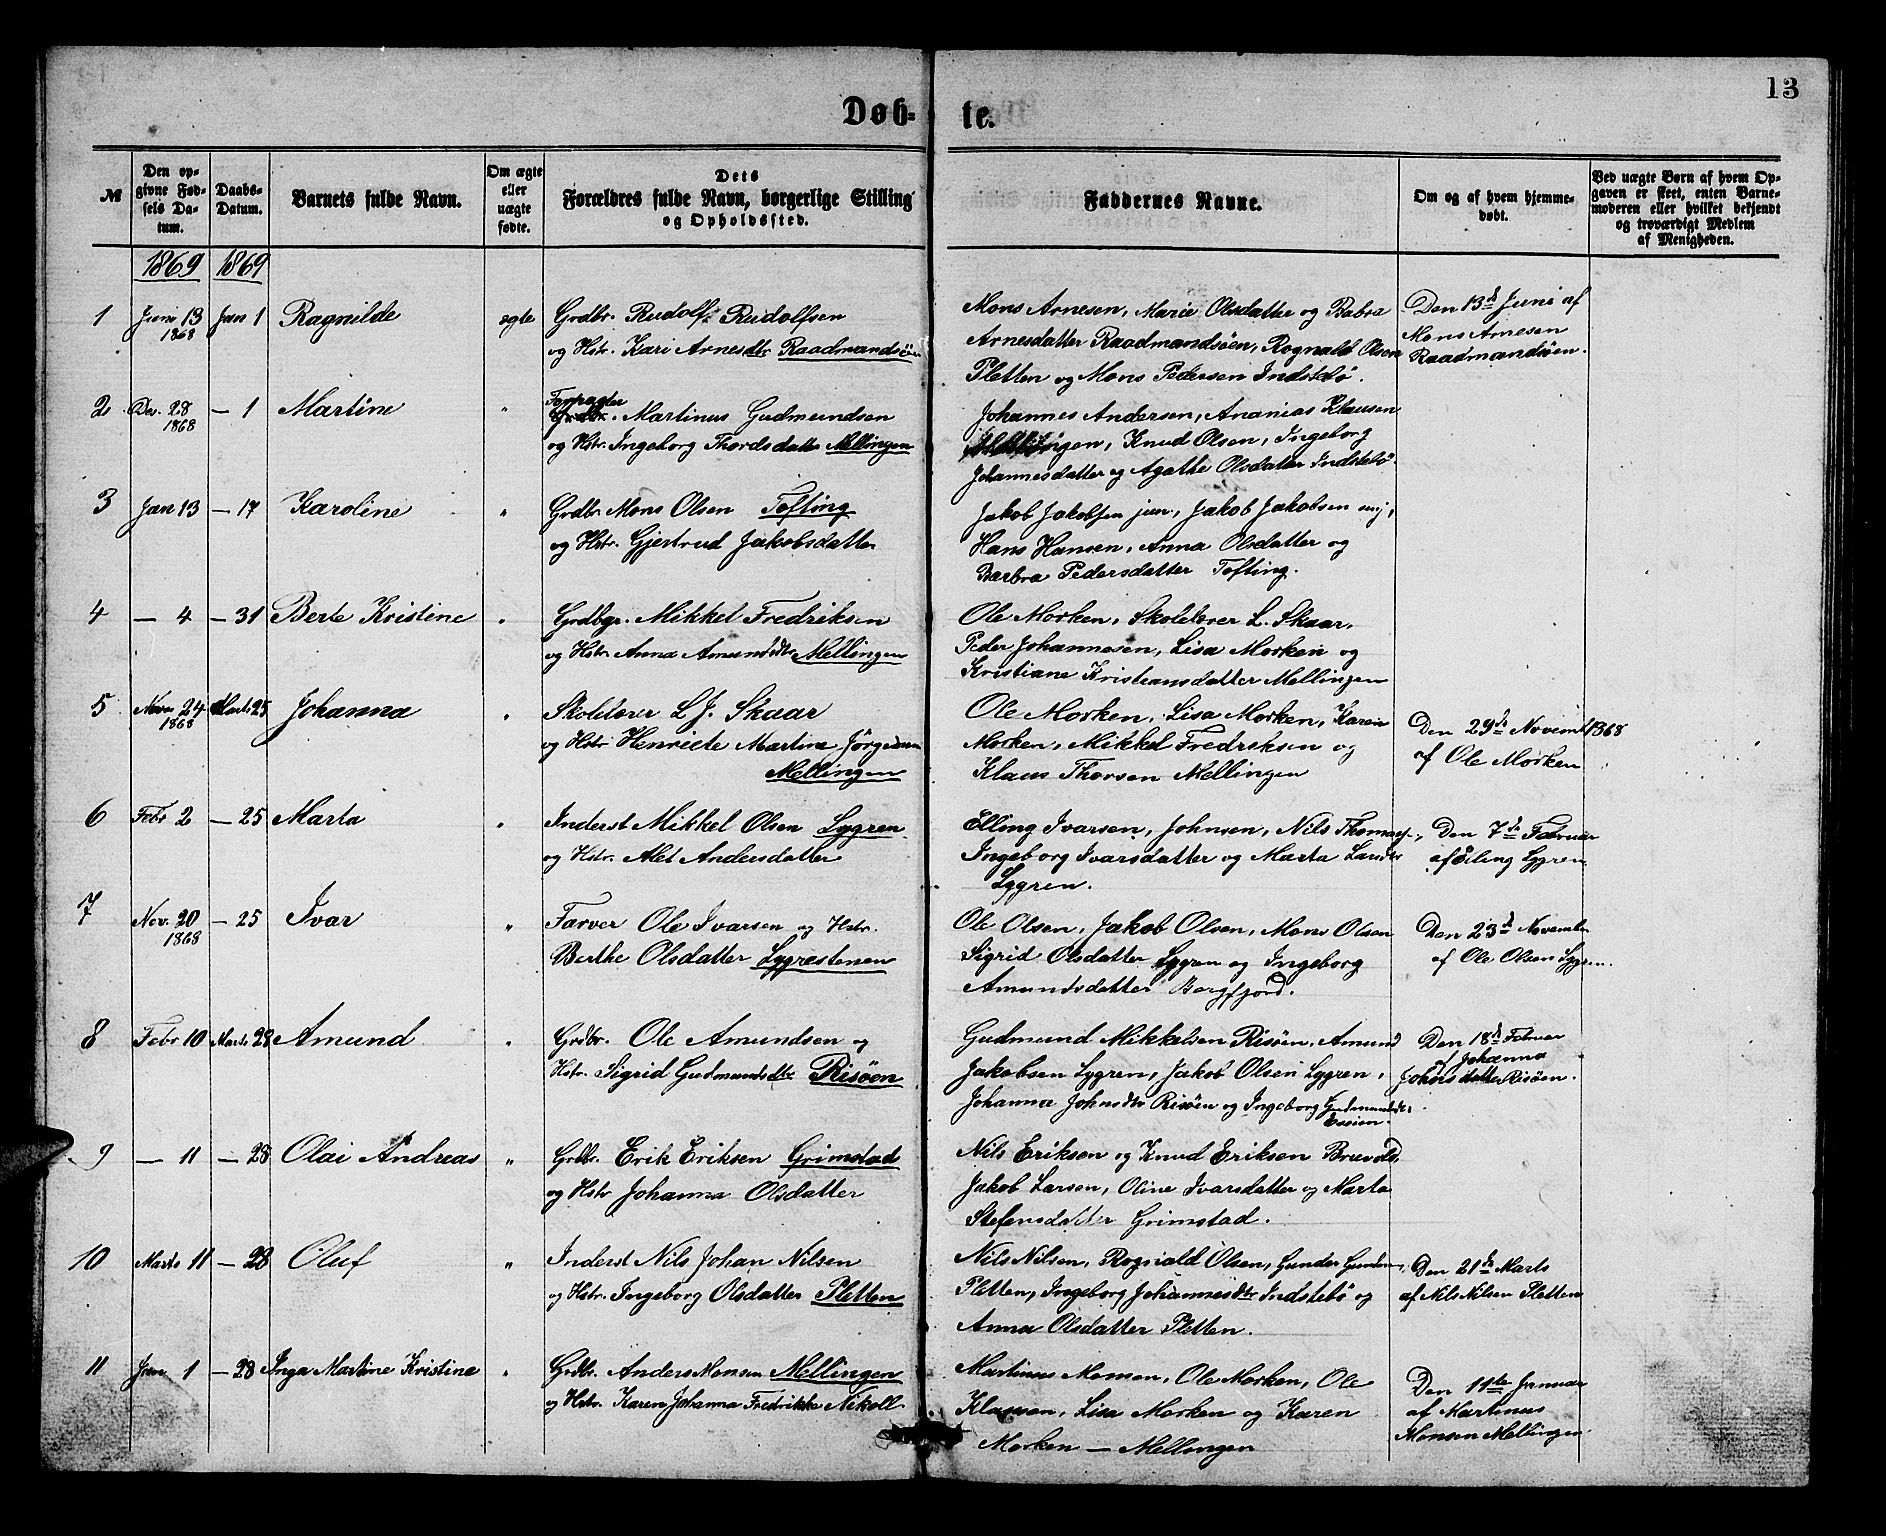 13
Døb- te.
№
Den op-
givne Fød-
sels Da-
tum.
Daabs-
Datum.
Barnets fulde Navn.
Om ægte
eller
uægte
fødte.
Dets
Forældres fulde Navn, borgerlige Stilling
og Opholdssted.
Faddernes Navne.
Om og af hvem hjemme-
døbt.
Ved uægte Børn af hvem Op-
gaven er skeet, enten Barne-
moderen eller hvilket bekjendt
og troværdigt Medlem
af Menigheden.
1869 1869
1 Juni 13 1868 Jan 1 Ragnilde ægte
Grdbr. Rudolf Rudolfsen
og Hstr. Kari Arnesdtr Raadmandsöen
Mons Arnesen, Marie Olsdatter og Babra
Arnesdatter Raadmandsöen, Rognald Olsen
Pletten og Mons Pedersen Indstebö.
Den 13d Juni af
Mons Arnesen
Raadmandsöen.
2 Des. 28 1868 — 1 Martine "
Forpagter
Grdbr. Martinus Gudmundsen
og Hstr. Ingeborg Thordsdatte Mellingen
Johannes Andersen, Ananias Klausen
Mellingen, Knud Olsen, Ingeborg
Johannesdatter og Agathe Olsdatter Indstebö
3 Jan 13 — 17 Karoline "
Grdbr. Mons Olsen Tofting
og Hstr. Gjertrud Jakobsdatter
Jakob Jakobsen jun, Jakob Jakobsen
Hans Hansen, Anna Olsdatter og
Barbra Pedersdatter Tofting.
4 — 4 — 31 Berte Kristine "
Grdbgr. Mikkel Fredriksen
og Hstr. Anna Amundsdtr Mellingen
Ole Morken, Skolelærer L. Skaar,
Peder Johannesen, Lisa Morken og
Kristiane Kristiansdatter Mellingen
5 Nov. 24 1868 Marts 25 Johanna "
Skolelærer L J. Skaar
og Hstr Henriete Martine Jörgensen
Mellingen
Ole Morken, Lisa Morken, Karen
Morken, Mikkel Fredriksen og
Klaus Thorsen Mellingen
Den 29de Novemb 1868
af Ole Morken
6 Febr 2 — 25 Marta "
Inderst Mikkel Olsen Lygren
og Hstr. Alet Andersdatter
Elling Ivarsen, Johnsen, Nils Thomas
Ingeborg Ivarsdatter og Marta Larsdtr
Lygren.
Den 7de Februar
af Elling Lygren
7 Nov. 20 1868 — 25 Ivar "
Farver Ole Ivarsen og Hstr.
Berthe Olsdatter Lygrestenen
Ole Olsen, Jakob Olsen, Mons Olsen
Sigrid Olsdatter Lygren og Ingeborg
Amundsdatter Borgfjord.
Den 23d November
af Ole Olsen Lygren.
8 Febr 10 Marts 28 Amund "
Grdbr. Ole Amundsen og
Hstr. Sigrid Gudmundsdtr Risöen
Gudmund Mikkelsen Risöen, Amund
Jakobsen Lygren, Jakob Olsen Lygren,
Johanna Johnsdtr Risöen og Ingeborg Gudmundsdtr
Den 18d Februar
af Johanna
Johnsdatter Risöen.
9 — 11 — 28 Olai Andreas "
Grdbr. Erik Eriksen Grimstad
og Hstr Johanna Olsdatter
Nils Eriksen og Knud Eriksen Bruvold,
Jakob Larsen, Oline Ivarsdatter og Marta
Stefensdatter Grimstad.
10 Marts 11 — 28 Oluf "
Inderst Nils Johan Nilsen
og Hstr. Ingeborg Olsdatter Pletten
Nils Nilsen, Rognald Olsen, Gunder
Pletten, Ingeborg Johannesdtr Indstebö og
Anna Olsdatter Pletten.
Den 21de Marts
af Nils Nilsen Pletten
11 Jan 1 — 28 Inga Martine Kristine "
Grdbr. Anders Monsen Mellingen
og Hstr. Karen Johanna Fredrikke Nikoll
Martinus Monsen, Ole Morken, Ole
Klausen, Lisa Morken og Karen
Morken — Mellingen
Den 11te Januar
af Martinus
Monsen Mellingen